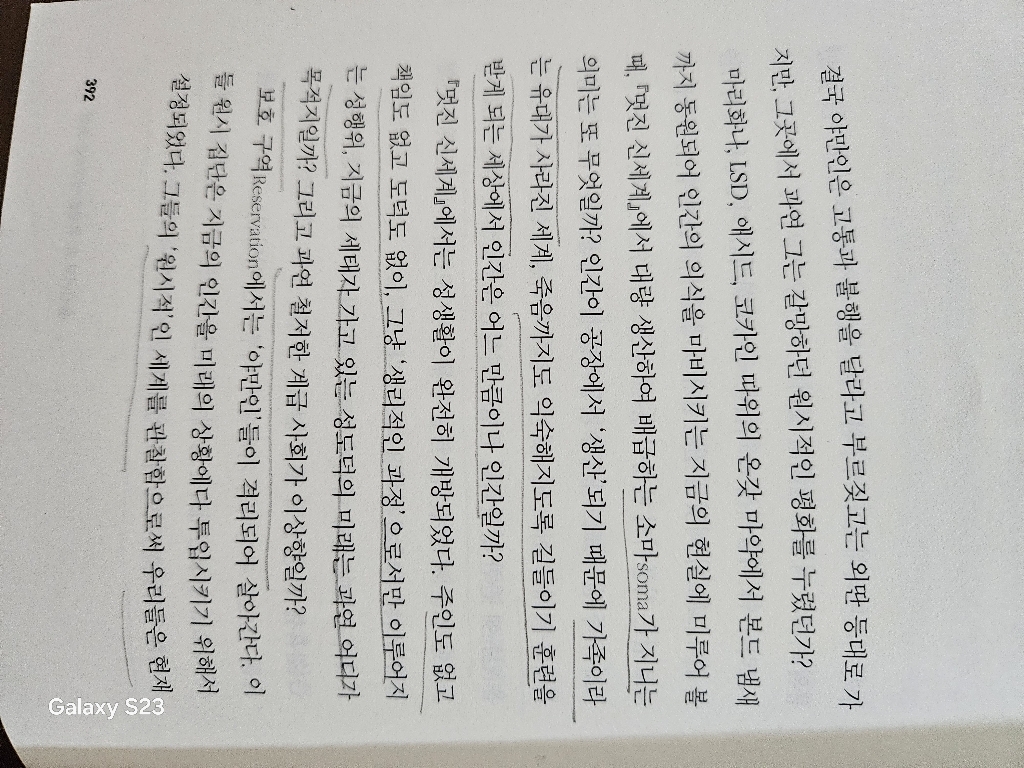 결국 야만인은 고통과 불행을 달라고 부르짖고는 외딴 등대로 가
지만, 그곳에서 과연 그는 갈망하던 원시적인 평화를 누렸던가?
마리화나, LSD, 애시드, 코카인 따위의 온갖 마약에서 본드 냄새
까지 동원되어 인간의 의식을 마비시키는 지금의 현실에 미루어 볼
때, 『멋진 신세계』에서 대량 생산하여 배급하는 소마soma가 지니는
의미는 또 무엇일까? 인간이 공장에서 '생산'되기 때문에 가족이라
는 유대가 사라진 세계, 죽음까지도 익숙해지도록 길들이기 훈련을
받게 되는 세상에서 인간은 어느 만큼이나 인간일까?
『멋진 신세계』에서는 성생활이 완전히 개방되었다. 주인도 없고
책임도 없고 도덕도 없이, 그냥 '생리적인 과정'으로서만 이루어지
는 성행위, 지금의 세태가 가고 있는 성도덕의 미래는 과연 어디가
목적지일까? 그리고 과연 철저한 계급 사회가 이상향일까?
보호 구역Reservation에서는 '야만인'들이 격리되어 살아간다. 이
들 원시 집단은 지금의 인간을 미래의 상황에다 투입시키기 위해서
설정되었다. 그들의 '원시적'인 세계를 관찰함으로써 우리들은 현재
392
Galaxy S23